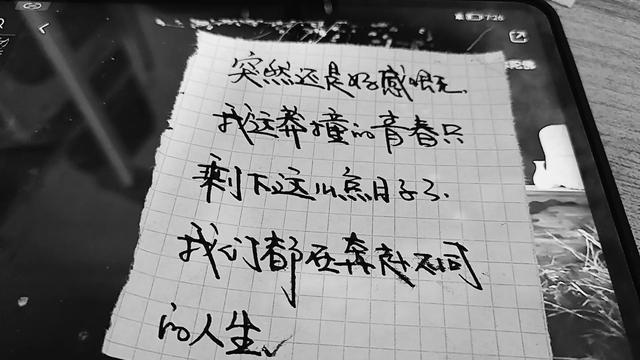 7:26
突然还是好感慨无.
我这莽撞的青春只
剩下这么点日子了.
我们都在奔赴不同
的人生